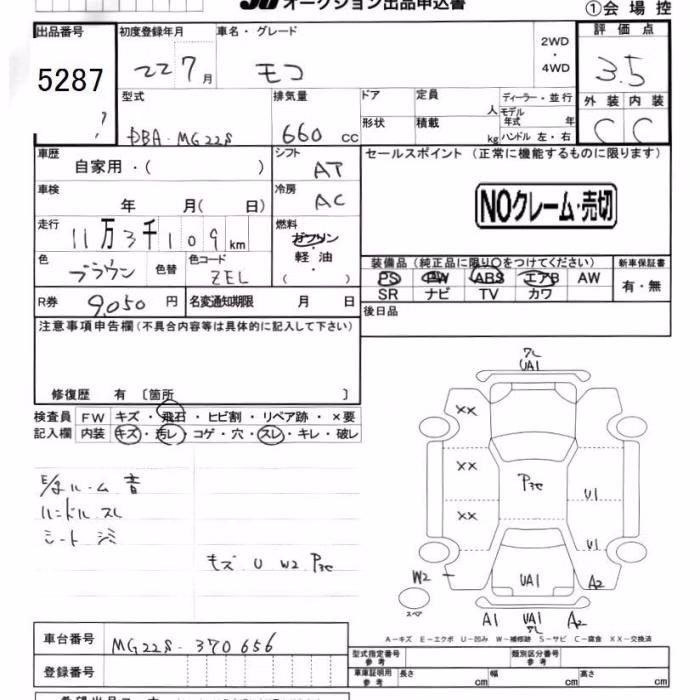 オークション出品申込書
①会場控
出品番号 初度登録年月 車名・グレード 2WD・4WD 評価点
5287 22 7月 モコ 3.5
型式 排気量 ドア 定員 人 ディーラー・並行 外装 内装
DBA-MG22S 660cc 形状 積載 kg モデル年式 年 ハンドル 左・右 C C
車歴 自家用・( ) シフト AT セールスポイント (正常に機能するものに限ります)
車検 年 月( 日) 冷房 AC
NOクレーム・売切
走行 11万3千109km 燃料 ガソリン・軽油・( )
色 ブラウン 色替 色コード ZEL
装備品(純正品に限り○をつけてください) 新車保証書
PS PW ABS エアB AW 有・無
SR ナビ TV カワ
R券 9,050円 名変通知期限 月 日 後日品
注意事項申告欄(不具合内容等は具体的に記入して下さい)
修復歴 有 〔箇所 〕
検査員 FW キズ・飛石・ヒビ割・リペア跡・×要
記入欄 内装 キズ・汚レ・コゲ・穴・スレ・キレ・破レ
ハンドル スレ
シート
キズ U W2
UA1
XX
XX
XX
U1
U1
W2 UA1 A2
スペア
A1 UA1 A2
A-キズ E-エクボ U-凹み W-補修跡 S-サビ C-腐食 XX-交換済
車台番号 MG22S-370656
型式指定番号 参考 類別区分番号 参考
登録番号
車庫証明用 参考 長さ cm 幅 cm 高さ cm